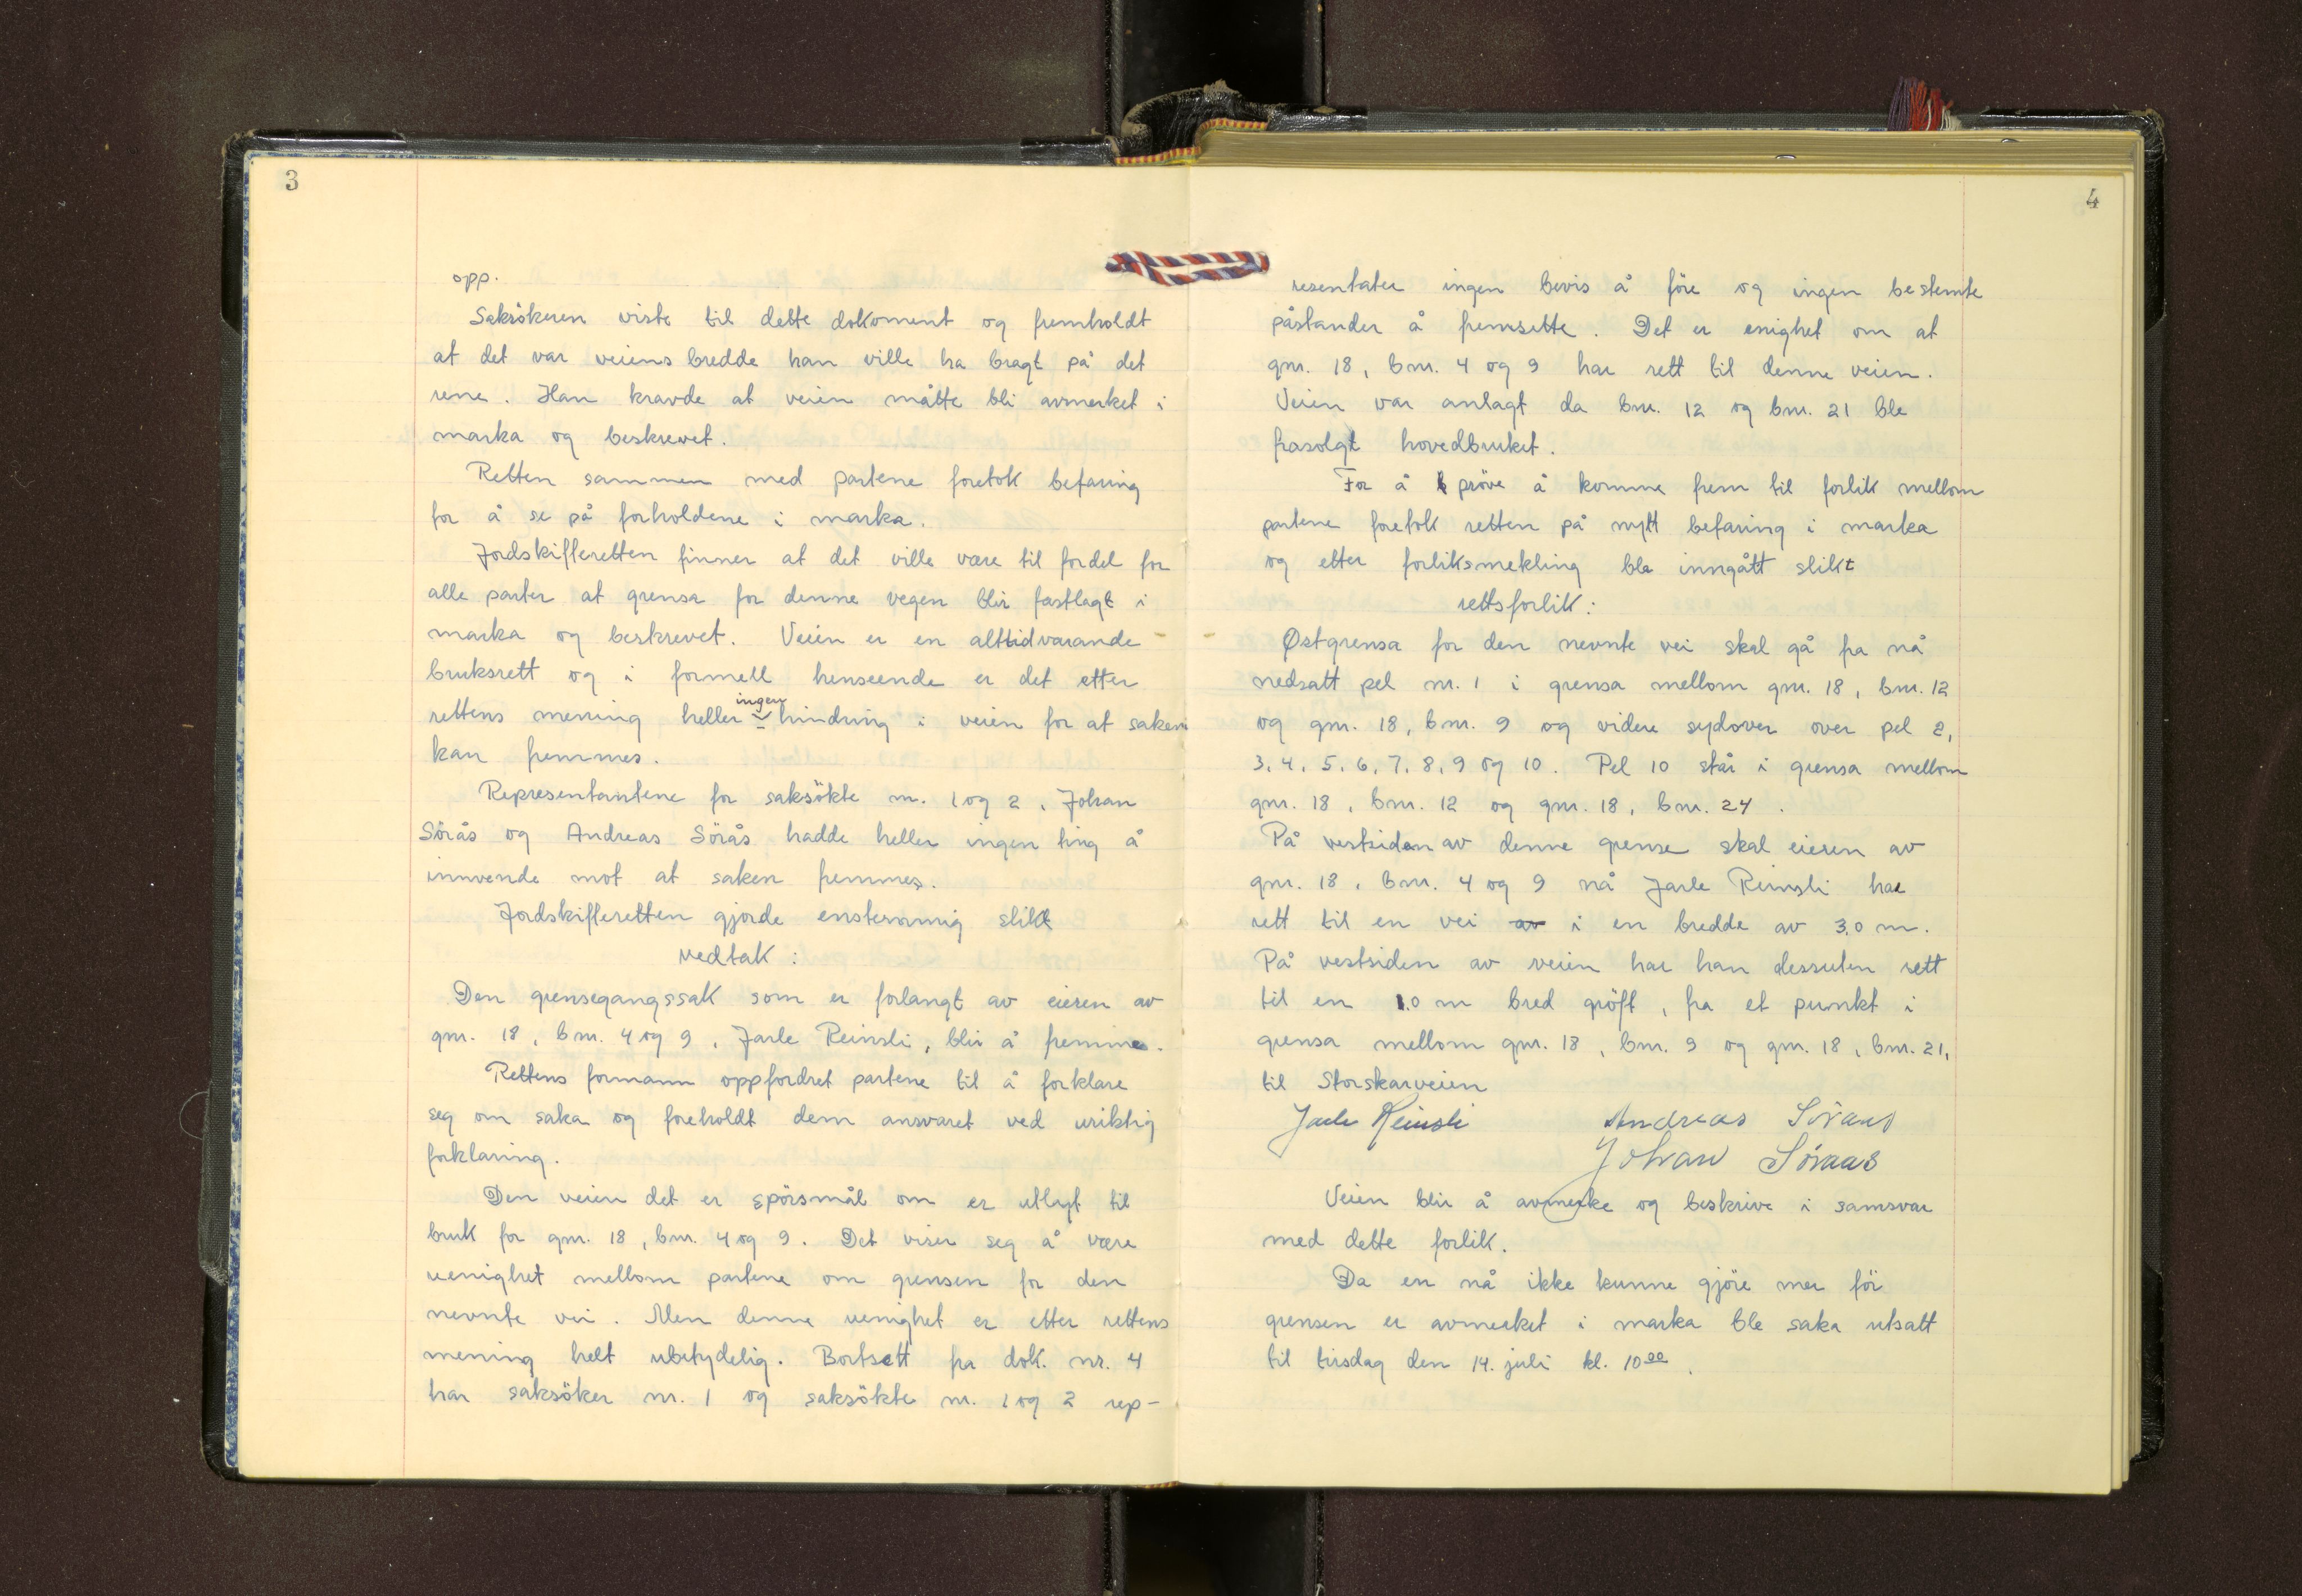 3
opp.
Saksökeren viste til dette dokoment og fremholdt
at det var veiens bredde han ville ha bragt på det
rene. Han kravde at veien måtte bli avmerket i
marka og beskrevet.
Retten sammen med partene foretok befaring
for å se på forholdene i marka.
Jordskifteretten finner at det ville være til fordel for
alle parter at grensa for denne vegen blir fastlagt i
marka og beskrevet. Veien er en alttidvarande
bruksrett og i formell henseende er det etter
rettens mening heller ingen hindring i veien for at saken
kan fremmes.
Representantene for saksökte nr. 1 og 2, Johan
Sörås og Andreas Sörås hadde heller ingen ting å
innvende mot at saken fremmes.
Jordskifteretten gjorde enstemmig slikt
vedtak:
Den grensegangssak som er forlangt av eieren av
gnr. 18, bnr. 4 og 9, Jarle Reinsli, blir å fremme.
Rettens formann oppfordret partene til å forklare
seg om saka og foreholdt dem ansvaret ved uriktig
forklaring.
Den veien det er spörsmål om er utlagt til
bruk for gnr. 18, bnr. 4 og 9. Det viser seg å være
uenighet mellom partene om grensen for den
nevnte vei. Men denne uenighet er etter rettens
mening helt ubetydelig. Bortsett fra dok. nr. 4
har saksöker nr. 1 og saksökte nr. 1 og 2 rep-
4
resentater ingen bevis å före og ingen bestemte
påstander å fremsette. Det er enighet om at
gnr. 18, bnr. 4 og 9 har rett til denne veien.
Veien var anlagt da bnr. 12 og bnr. 21 ble
frasolgt hovedbruket.
For å pröve å komme frem til forlik mellom
partene foretok retten på nytt befaring i marka
og etter forliksmekling ble inngått slikt
rettsforlik:
Østgrensa for den nevnte vei skal gå fra nå
nedsatt pel nr. 1 i grensa mellom gnr. 18, bnr. 12
og gnr. 18, bnr. 9 og videre sydover over pel 2,
3, 4, 5, 6, 7, 8, 9 og 10. Pel 10 står i grensa mellom
gnr. 18, bnr. 12 og gnr. 18, bnr. 24.
På vestsiden av denne grense skal eieren av
gnr. 18, bnr. 4 og 9 nå Jarle Reinsli ha
rett til en vei av i en bredde av 3.0 m.
På vestsiden av veien har han dessuten rett
til en 1.0 m bred gröft, fra et punkt i
grensa mellom gnr. 18, bnr. 9 og gnr. 18, bnr. 21,
til Storskarveien
Jarle Reinsli Andreas Söraas
Johan Söraas
Veien blir å avmerke og beskrive i samsvar
med dette forlik.
Da en nå ikke kunne gjöre mer för
grensen er avmerket i marka ble saka utsatt
til tirsdag den 14. juli kl. 10 00.